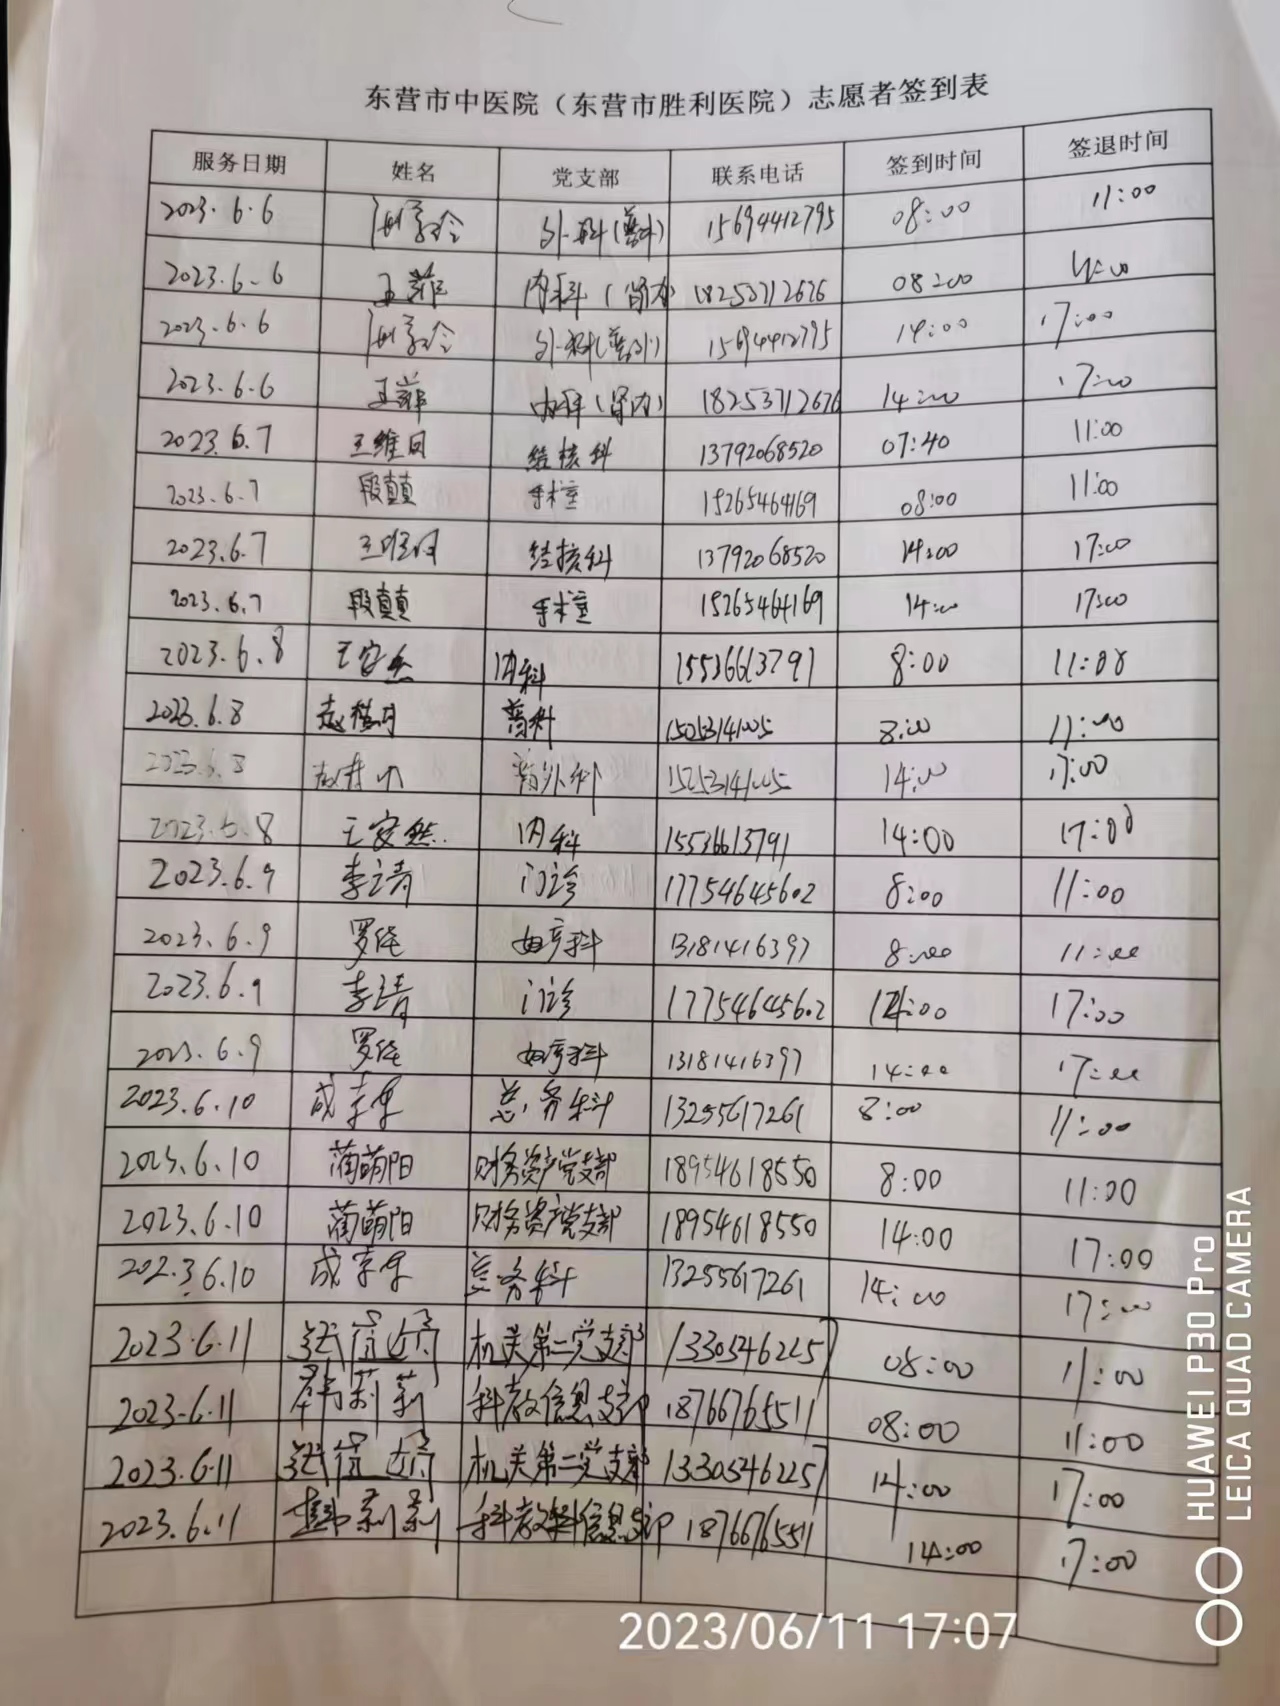 东营市中医院（东营市胜利医院）志愿者签到表
服务日期 姓名 党支部 联系电话 签到时间 签退时间
2023.6.6 外科(普外) 15694412795 08:00 11:00
2023.6.6 王菲 内科(肾内) 18253712676 08:00 11:00
2023.6.6 外科(普外) 15694412795 14:00 17:00
2023.6.6 王菲 内科(肾内) 18253712676 14:00 17:00
2023.6.7 王维同 结核科 13792068520 07:40 11:00
2023.6.7 段真真 手术室 15265464169 08:00 11:00
2023.6.7 结核科 13792068520 14:00 17:00
2023.6.7 段真真 手术室 15265464169 14:00 17:00
2023.6.8 王安然 内科 15536613791 8:00 11:00
2023.6.8 普外科 15053141005 8:00 11:00
2023.6.8 普外科 15053141005 14:00 17:00
2023.6.8 王安然 内科 15536613791 14:00 17:00
2023.6.9 李立青 门诊 17754645602 8:00 11:00
2023.6.9 妇产科 13181416397 8:00 11:00
2023.6.9 李立青 门诊 17754645602 14:00 17:00
2023.6.9 妇产科 13181416397 14:00 17:00
2023.6.10 总务科 13255617261 8:00 11:00
2023.6.10 蔺萌阳 财务资产党支部 18954618550 8:00 11:00
2023.6.10 蔺萌阳 财务资产党支部 18954618550 14:00 17:00
2023.6.10 总务科 13255617261 14:00 17:00
2023.6.11 机关第二党支部 13305462257 08:00 11:00
2023.6.11 韩莉莉 科教信息支部 18766765511 08:00 11:00
2023.6.11 机关第二党支部 13305462257 14:00 17:00
2023.6.11 韩莉莉 科教信息支部 18766765511 14:00 17:00
2023/06/11 17:07
HUAWEI P30 Pro
LEICA QUAD CAMERA